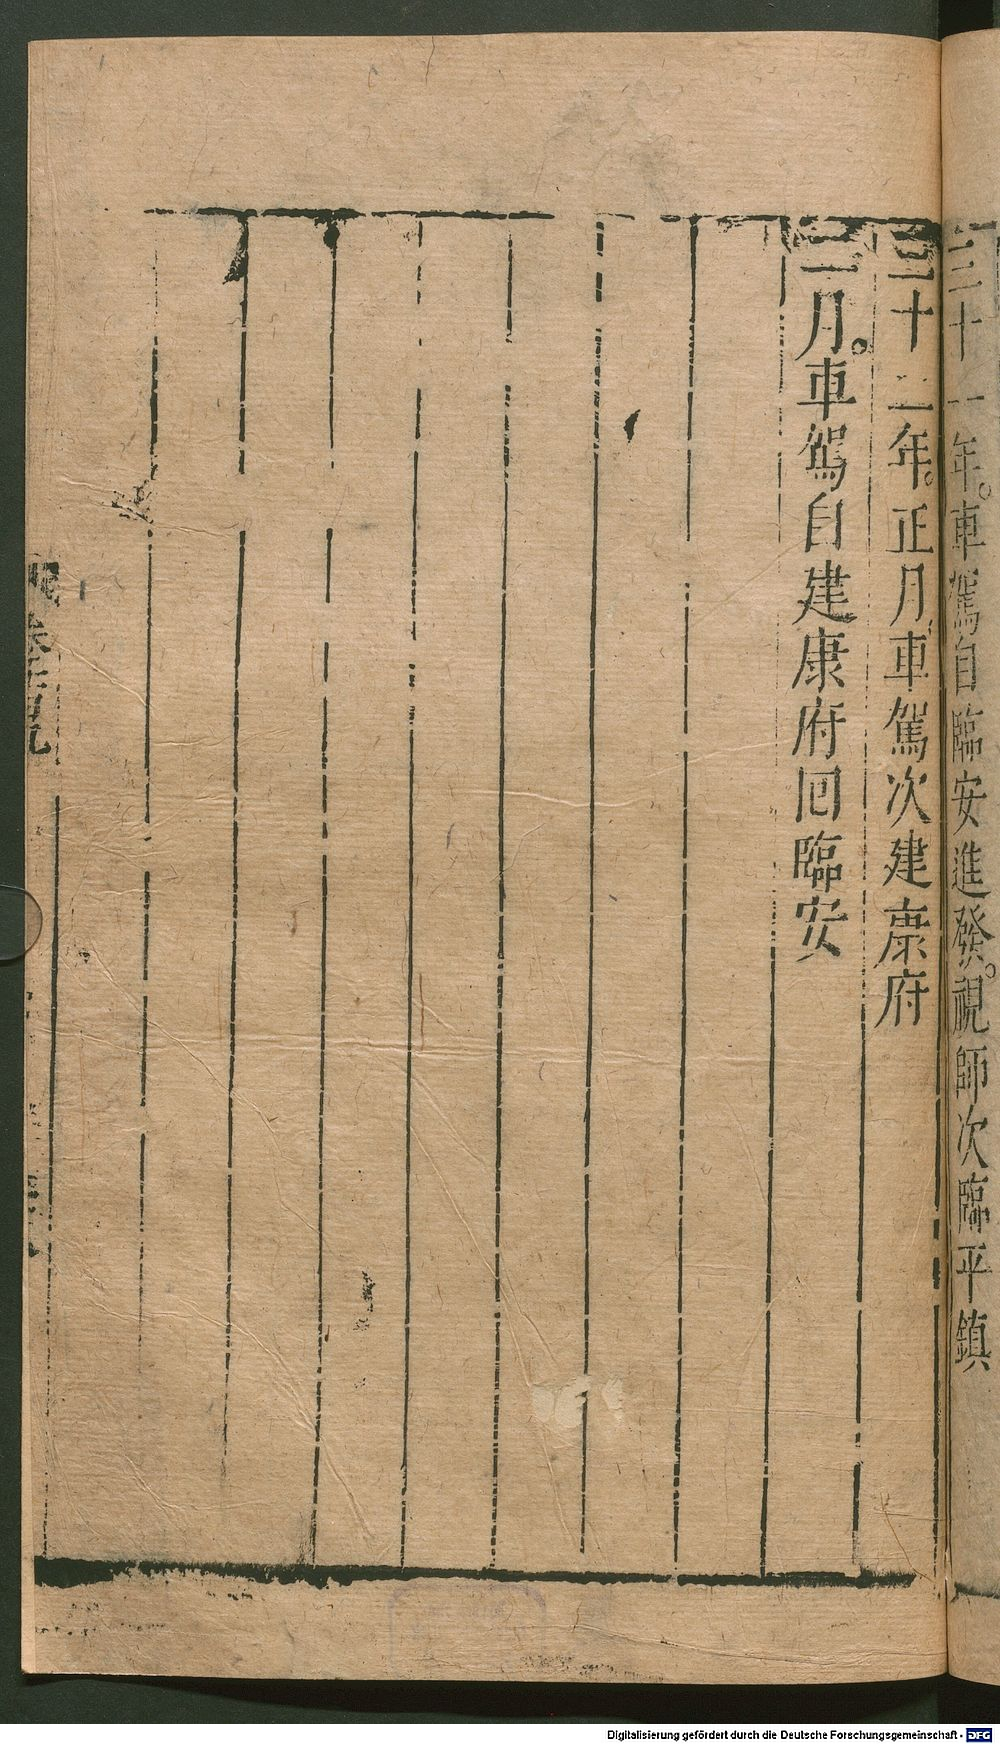 三十一年。車駕自臨安進發。視師次臨平鎮
三十二年。正月。車駕次建康府
二月。車駕自建康府囘臨安
Digitalisierung gefördert durch die Deutsche Forschungsgemeinschaft - DFG